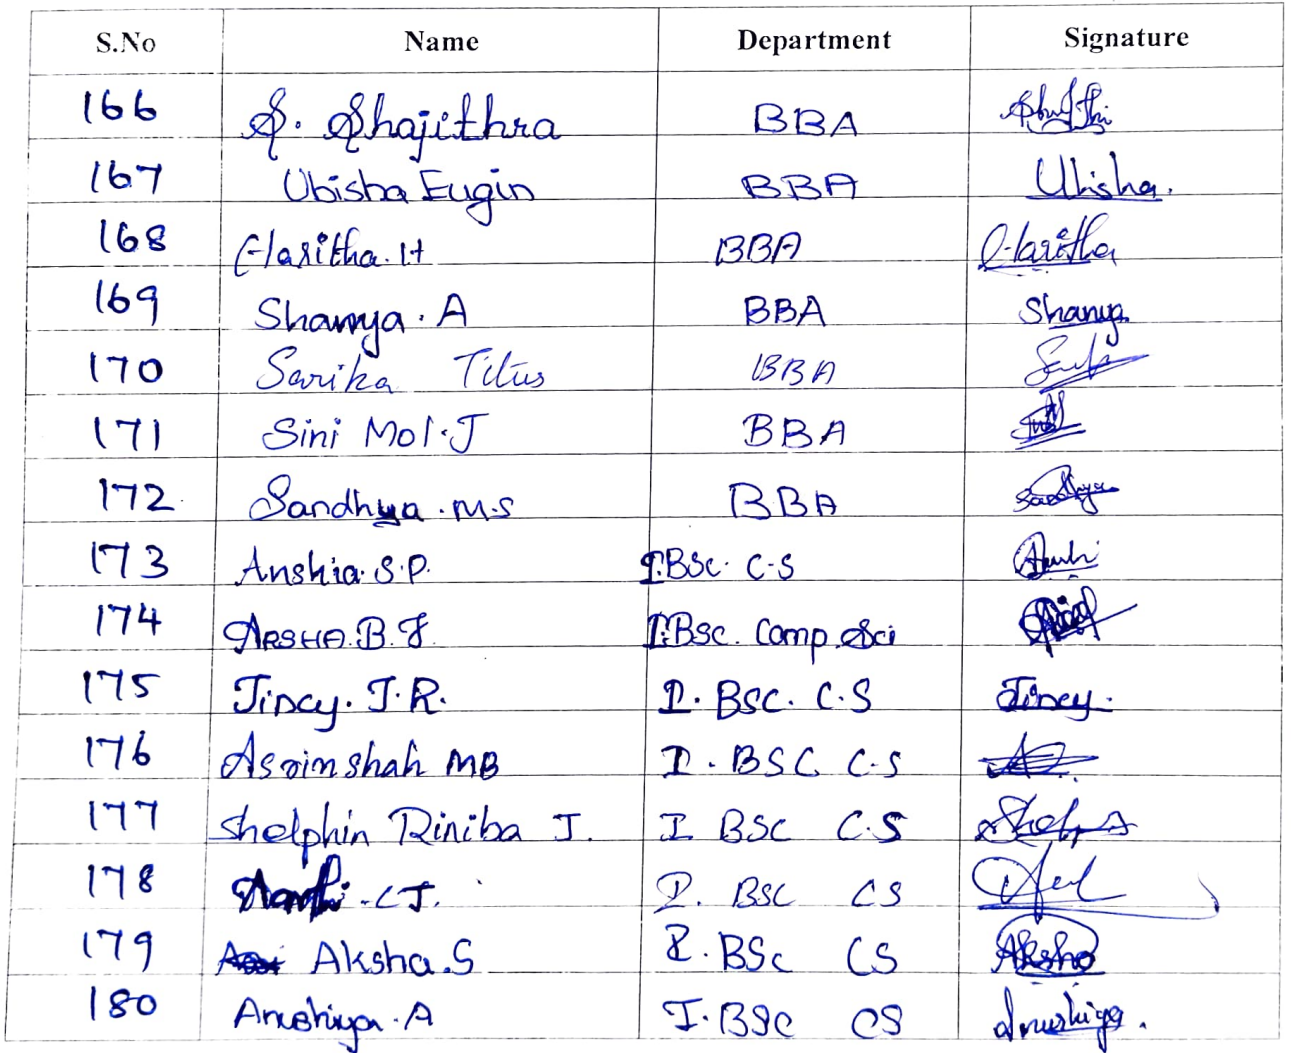 S.No Name Department Signature
166 S. Shajithra BBA
167 Ubisha Eugin BBA Ubisha.
168 Haritha. H BBA Haritha
169 Shanya. A BBA Shanya
170 Sarika Titus BBA
171 Sini Mol. J BBA
172 Sandhya. M.S BBA Sandhya
173 Anshia. S.P. I.BSc. C-S
174 ARSHA. B. J I.BSc. Comp. Sci
175 Jincy. J.R. I. BSC. C.S Jincy.
176 Asrinshah MB I. BSC C.S
177 Shelphin Riniba J. I BSC C.S
178 C J. I. BSC CS
179 Aksha.S I. BSc CS Aksha
180 Anushiya. A I. BSc CS Anushiya.